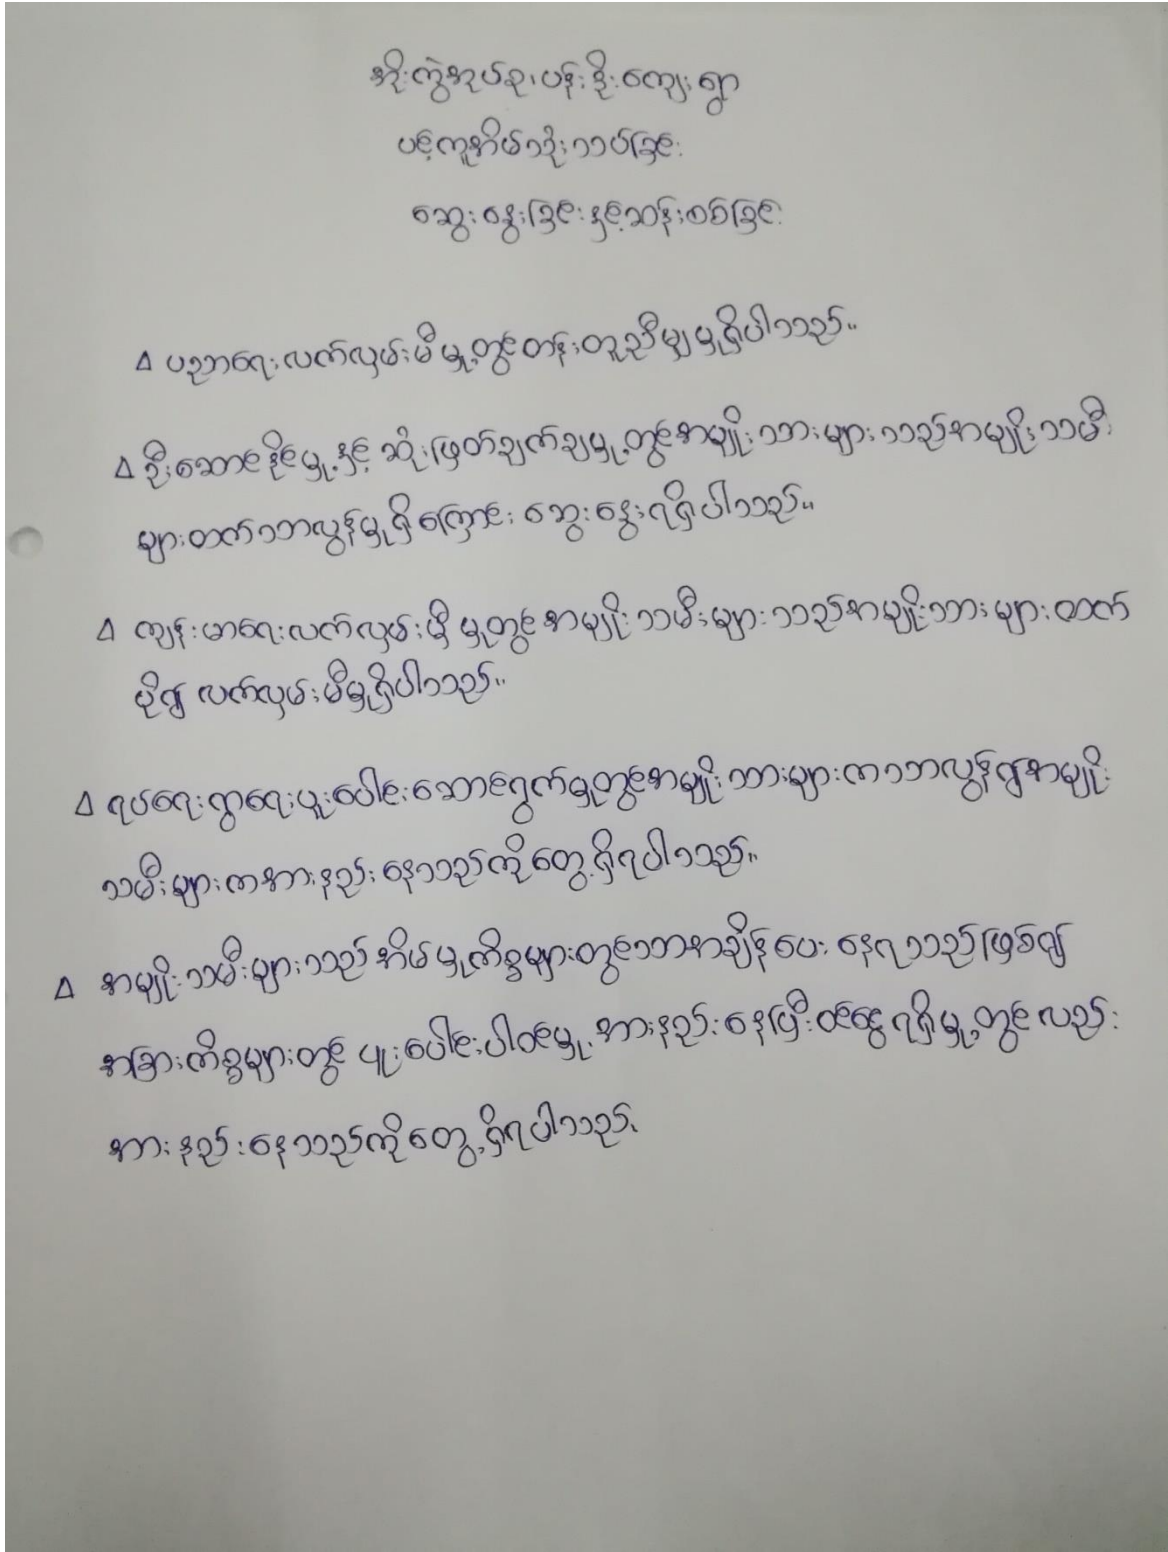 အိုးကွဲအုပ်စု၊ ပန်းဒိုးကျေးရွာ
ပင့်ကူအိမ်သုံးသပ်ခြင်း
ဆွေးနွေးခြင်းနှင့်ဆန်းစစ်ခြင်း
Δ ပညာရေးလက်လှမ်းမီမှုတွင်တန်းတူညီမျှမှုရှိပါသည်။
Δ ဦးဆောင်နိုင်မှု့နှင့် ဆုံးဖြတ်ချက်ချမှု့တွင်အမျိုးသားများသည်အမျိုးသမီး
များထက်သာလွန်မှုရှိကြောင်း ဆွေးနွေးရရှိပါသည်။
Δ ကျန်းမာရေးလက်လှမ်းမှီမှုတွင်အမျိုးသမီးများသည်အမျိုးသားများထက်
ပို၍ လက်လှမ်းမီမှုရှိပါသည်။
Δ ရပ်ရေးရွာရေးပူးပေါင်းဆောင်ရွက်မှုတွင်အမျိုးသားများကသာလွန်၍အမျိုး
သမီးများကအားနည်းနေသည်ကိုတွေ့ရှိရပါသည်။
Δ အမျိုးသမီးများသည် အိမ်မှုကိစ္စများတွင်သာအချိန်ပေးနေရသည်ဖြစ်၍
အခြားကိစ္စများတွင် ပူးပေါင်းပါဝင်မှု့အားနည်းနေပြီးဝင်ငွေရရှိမှု့တွင်လည်း
အားနည်းနေသည်ကိုတွေ့ရှိရပါသည်၊